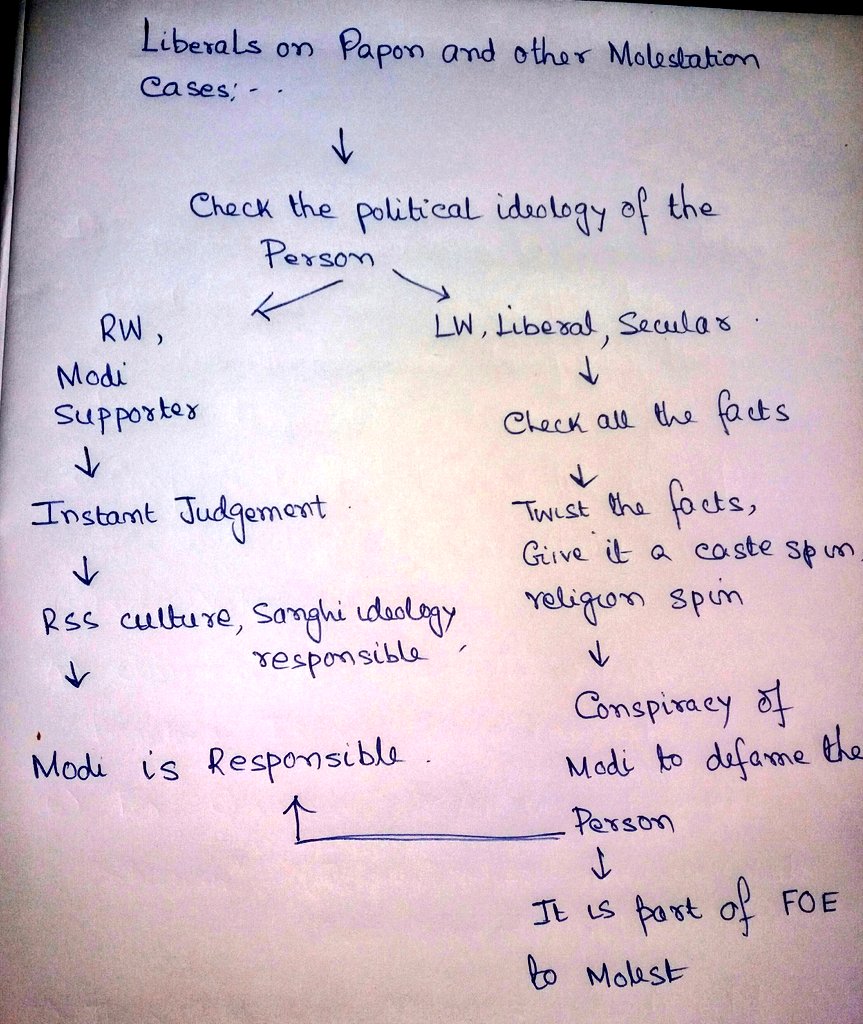 Liberals on Papon and other Molestation
Cases:- -
Check the political ideology of the
Person
RW,
Modi
Supporter
Instant Judgement
RSS culture, Sanghi ideology
responsible
Modi is Responsible.
LW, Liberal, Secular.
Check all the facts
Twist the facts,
Give it a caste spin,
religion spin
Conspiracy of
Modi to defame the
Person
It is part of FOE
to Molest